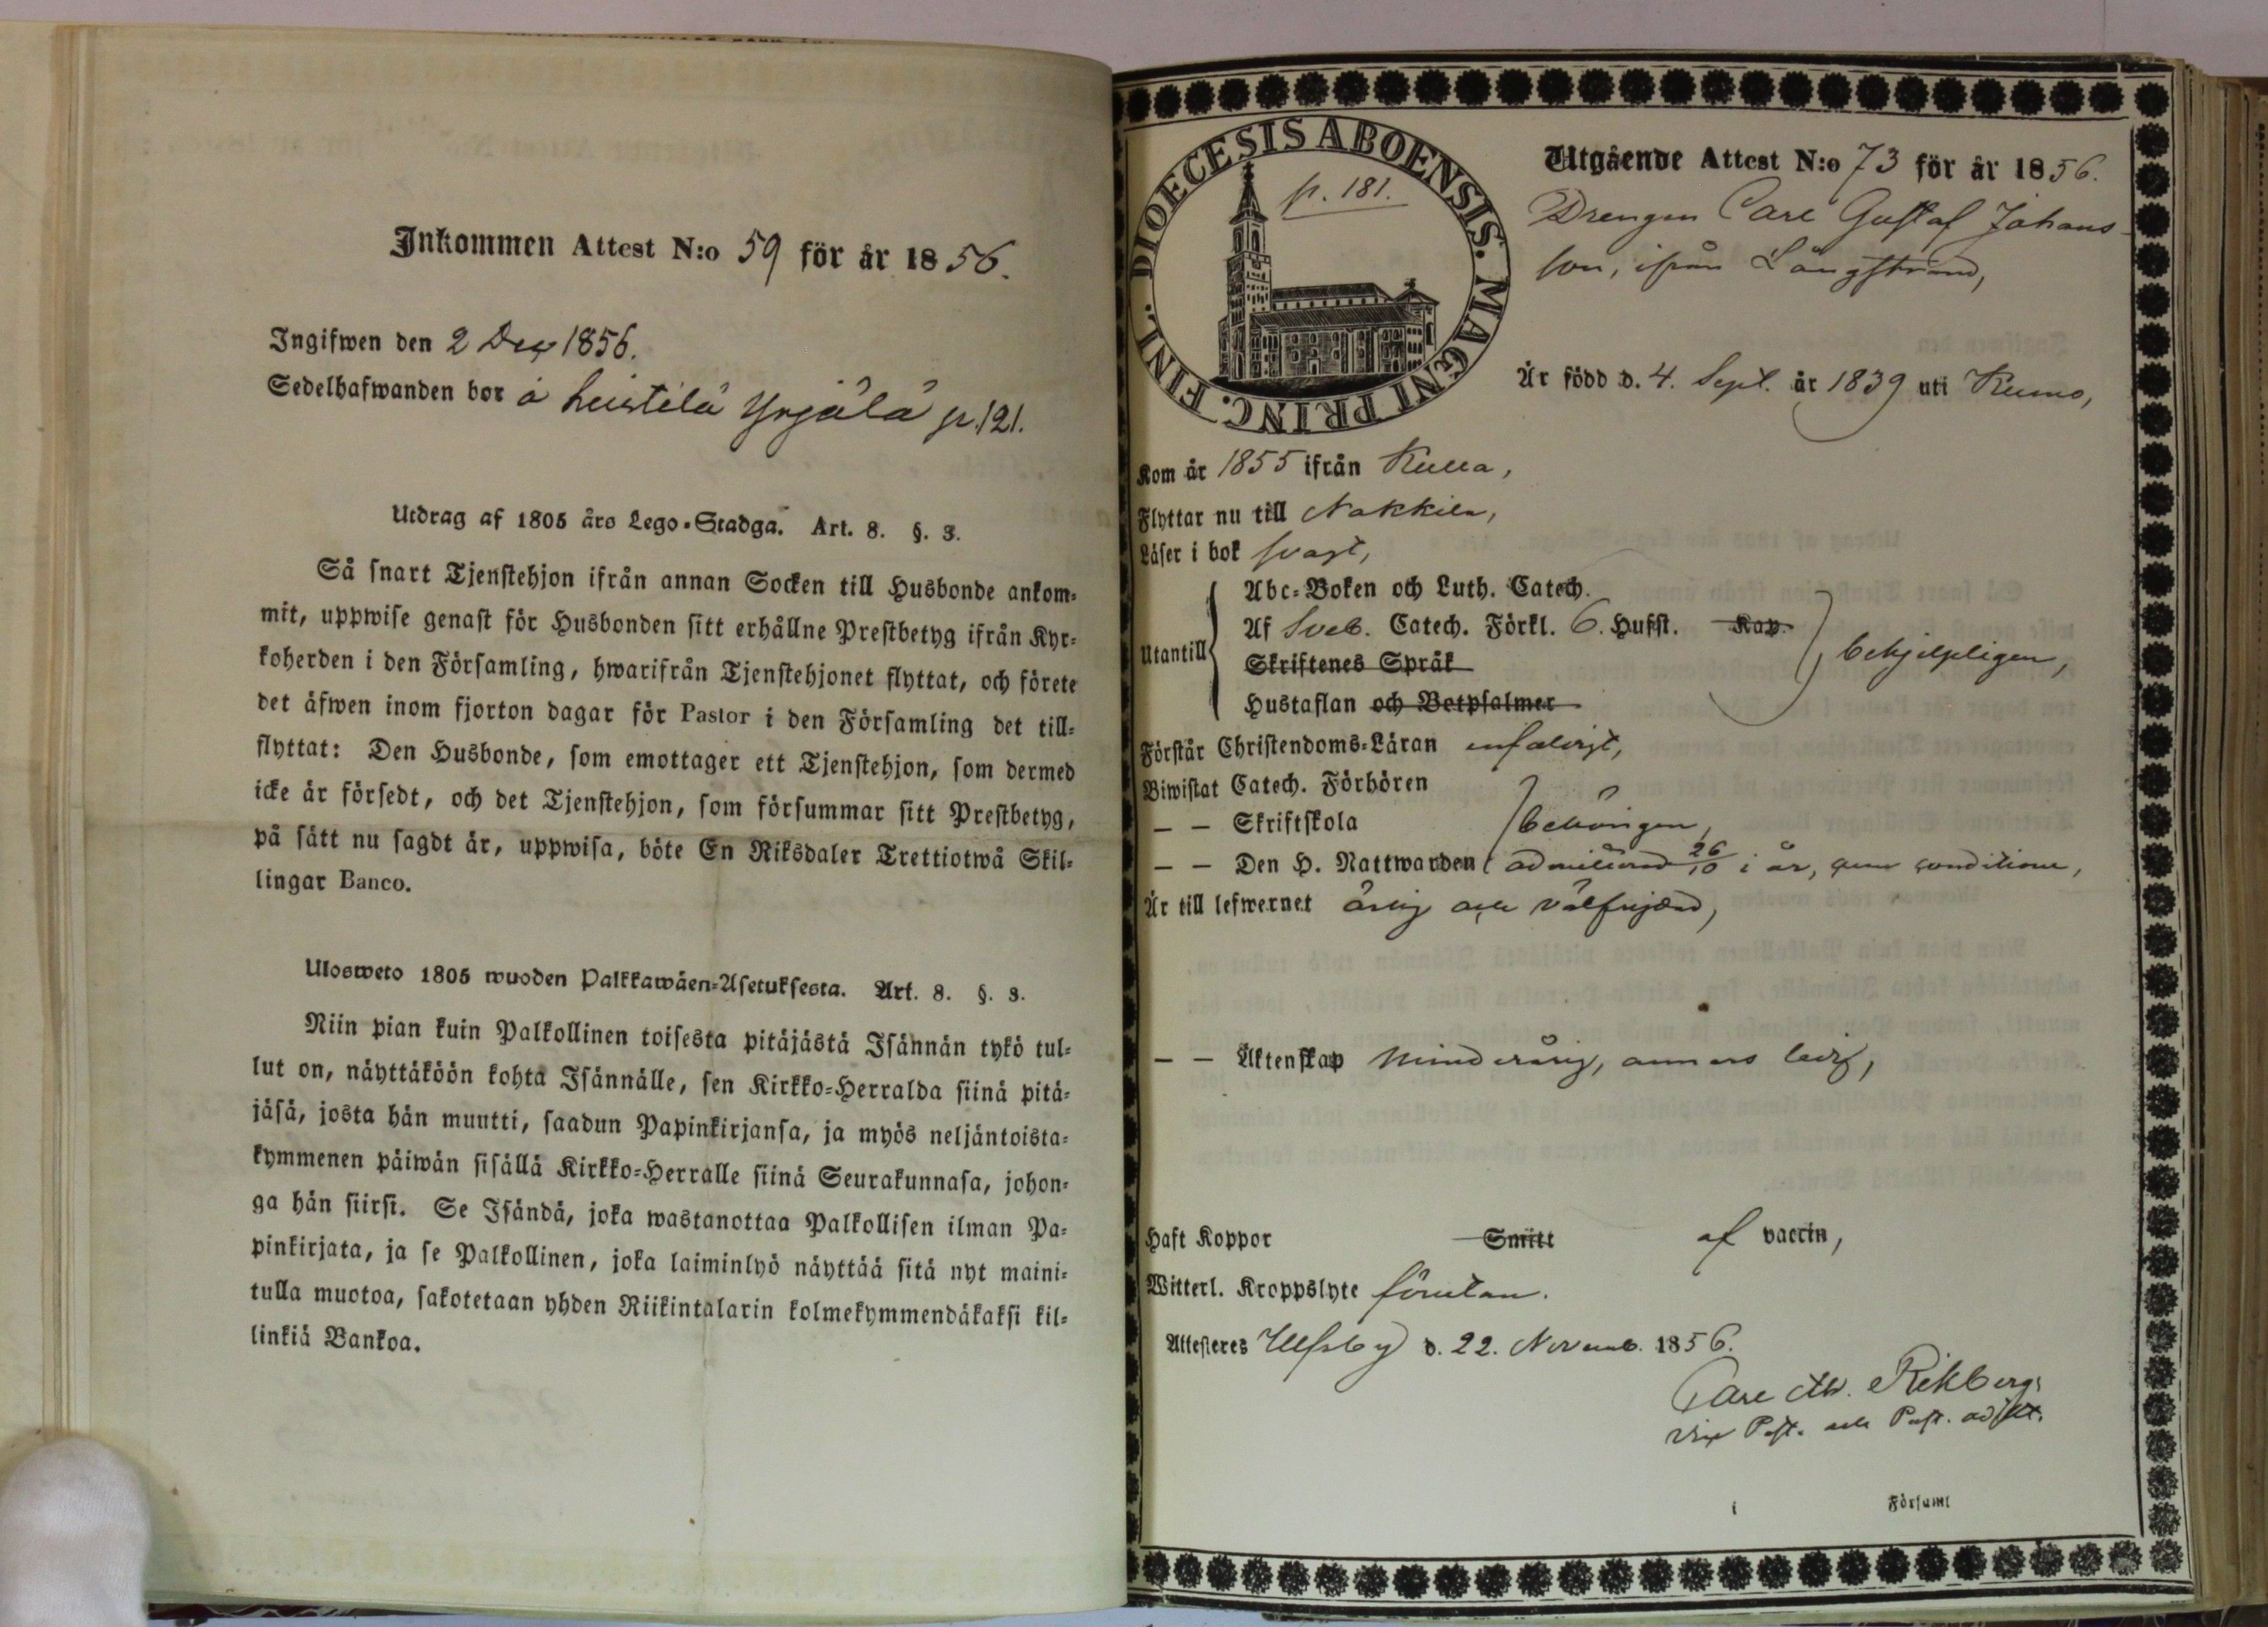 Inkommen Attest N:o 59 för år 1856.
Ingifwen den 2 Dec 1856.
Sedelhafwanden bor å Leistilä Yrjälä p. 121.
Utdrag af 1805 års Lego-Stadga. Art. 8. §. 3.
Så snart Tjenstehjon ifrån annan Socken till Husbonde ankom-
mit, uppwise genast för Husbonden sitt erhållne Prestbetyg ifrån Kyr-
koherden i den Församling, hwarifrån Tjenstehjonet flyttat, och förete
det äfwen inom fjorton dagar för Pastor i den Församling det till-
flyttat: Den Husbonde, som emottager ett Tjenstehjon, som dermed
icke är försedt, och det Tjenstehjon, som försummar sitt Prestbetyg,
på sätt nu sagdt är, uppwisa, böte En Riksdaler Trettiotwå Skil-
lingar Banco.
Ulosweto 1805 wuoden Palkkawäen-Asetuksesta. Art. 8. §. 3.
Niin pian kuin Palkollinen toisesta pitäjästä Isännän tykö tul-
lut on, näyttäköön kohta Isännälle, sen Kirkko-Herralda siinä pitä-
jäsä, josta hän muutti, saadun Papinkirjansa, ja myös neljäntoista-
kymmenen päiwän sisällä Kirkko-Herralle siinä Seurakunnasa, johon-
ga hän siirsi. Se Isändä, joka wastanottaa Palkollisen ilman Pa-
pinkirjata, ja se Palkollinen, joka laiminlyö näyttää sitä nyt maini-
tulla muotoa, sakotetaan yhden Riikintalarin kolmekymmendäkaksi kil-
linkiä Bankoa.
DIOECESIS ABOENSIS. MAGNI PRINC. FINL.
p. 181.
Utgående Attest N:o 73 för år 1856.
Drengen Carl Gustaf Johans-
son, ifrån Långstrand,
Är född d. 4. Sept. år 1839 uti Kumo,
Kom år 1855 ifrån Kulla,
Flyttar nu till Nakkila,
Läser i bok svagt,
Utantill
Abc-Boken och Luth. Catech.
Af Sveb. Catech. Förkl. 6. Hufst. Kap.
Skriftenes Språk
Hustaflan och Botpsalmer
behjelpligen,
Förstår Christendoms-Läran enfaldigt,
Biwistat Catech. Förhören
— — Skriftskola behörigen,
— — Den H. Nattwarden admitterad 26/10 i år, cum conditione,
Är till lefwernet ärlig och välfrejdad,
— — Äktenskap minderårig, annars ledig,
Haft Koppor Smitt af vaccin,
Witterl. Kroppslyte förutan.
Attesteres Ulfsby d. 22. Novemb. 1856.
Carl Rikberg,
Vice Past. och Past. adjkt.
i Församl